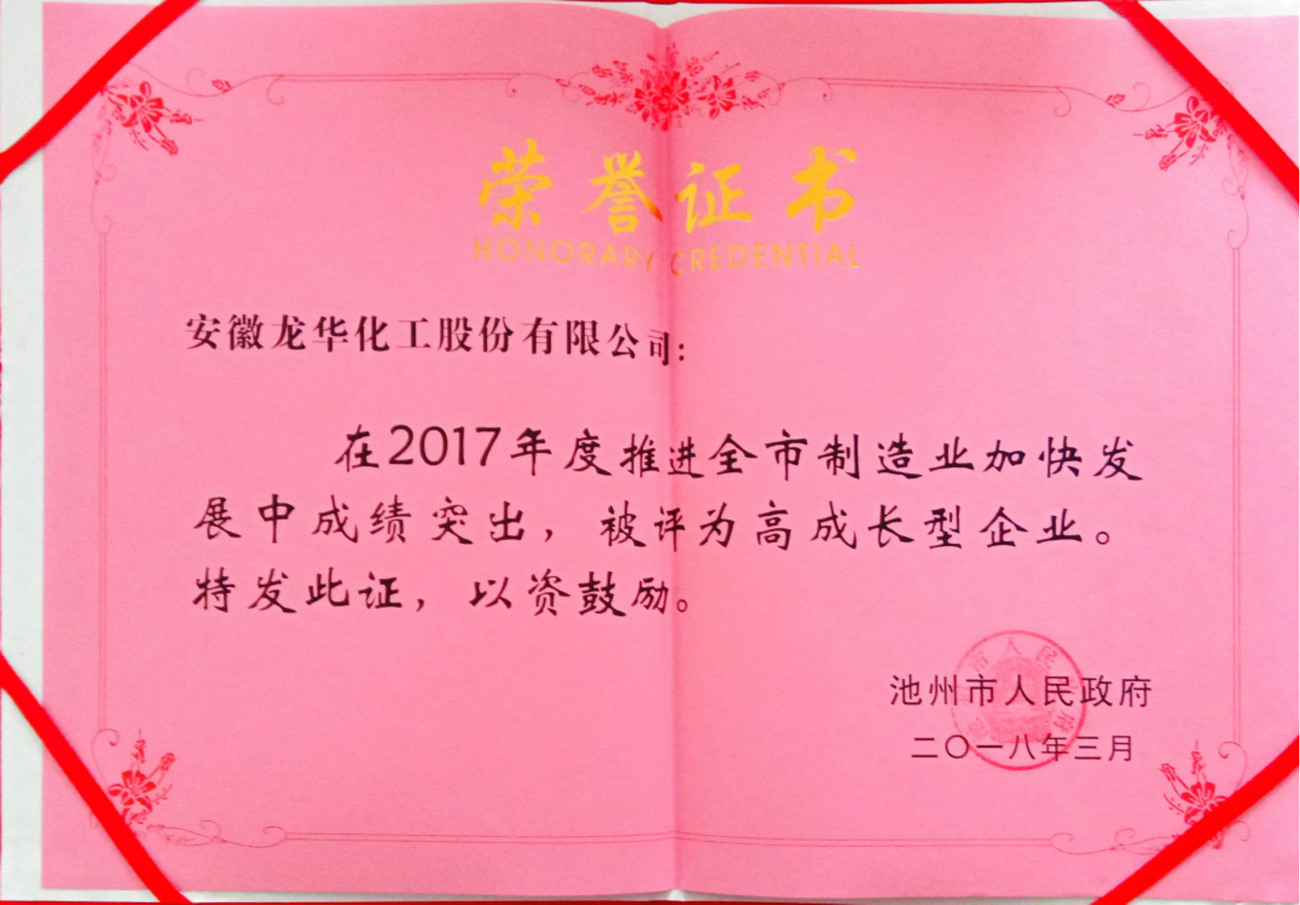 荣誉证书
HONORARY CREDENTIAL
安徽龙华化工股份有限公司:
在2017年度推进全市制造业加快发
展中成绩突出，被评为高成长型企业。
特发此证，以资鼓励。
池州市人民政府
二〇一八年三月